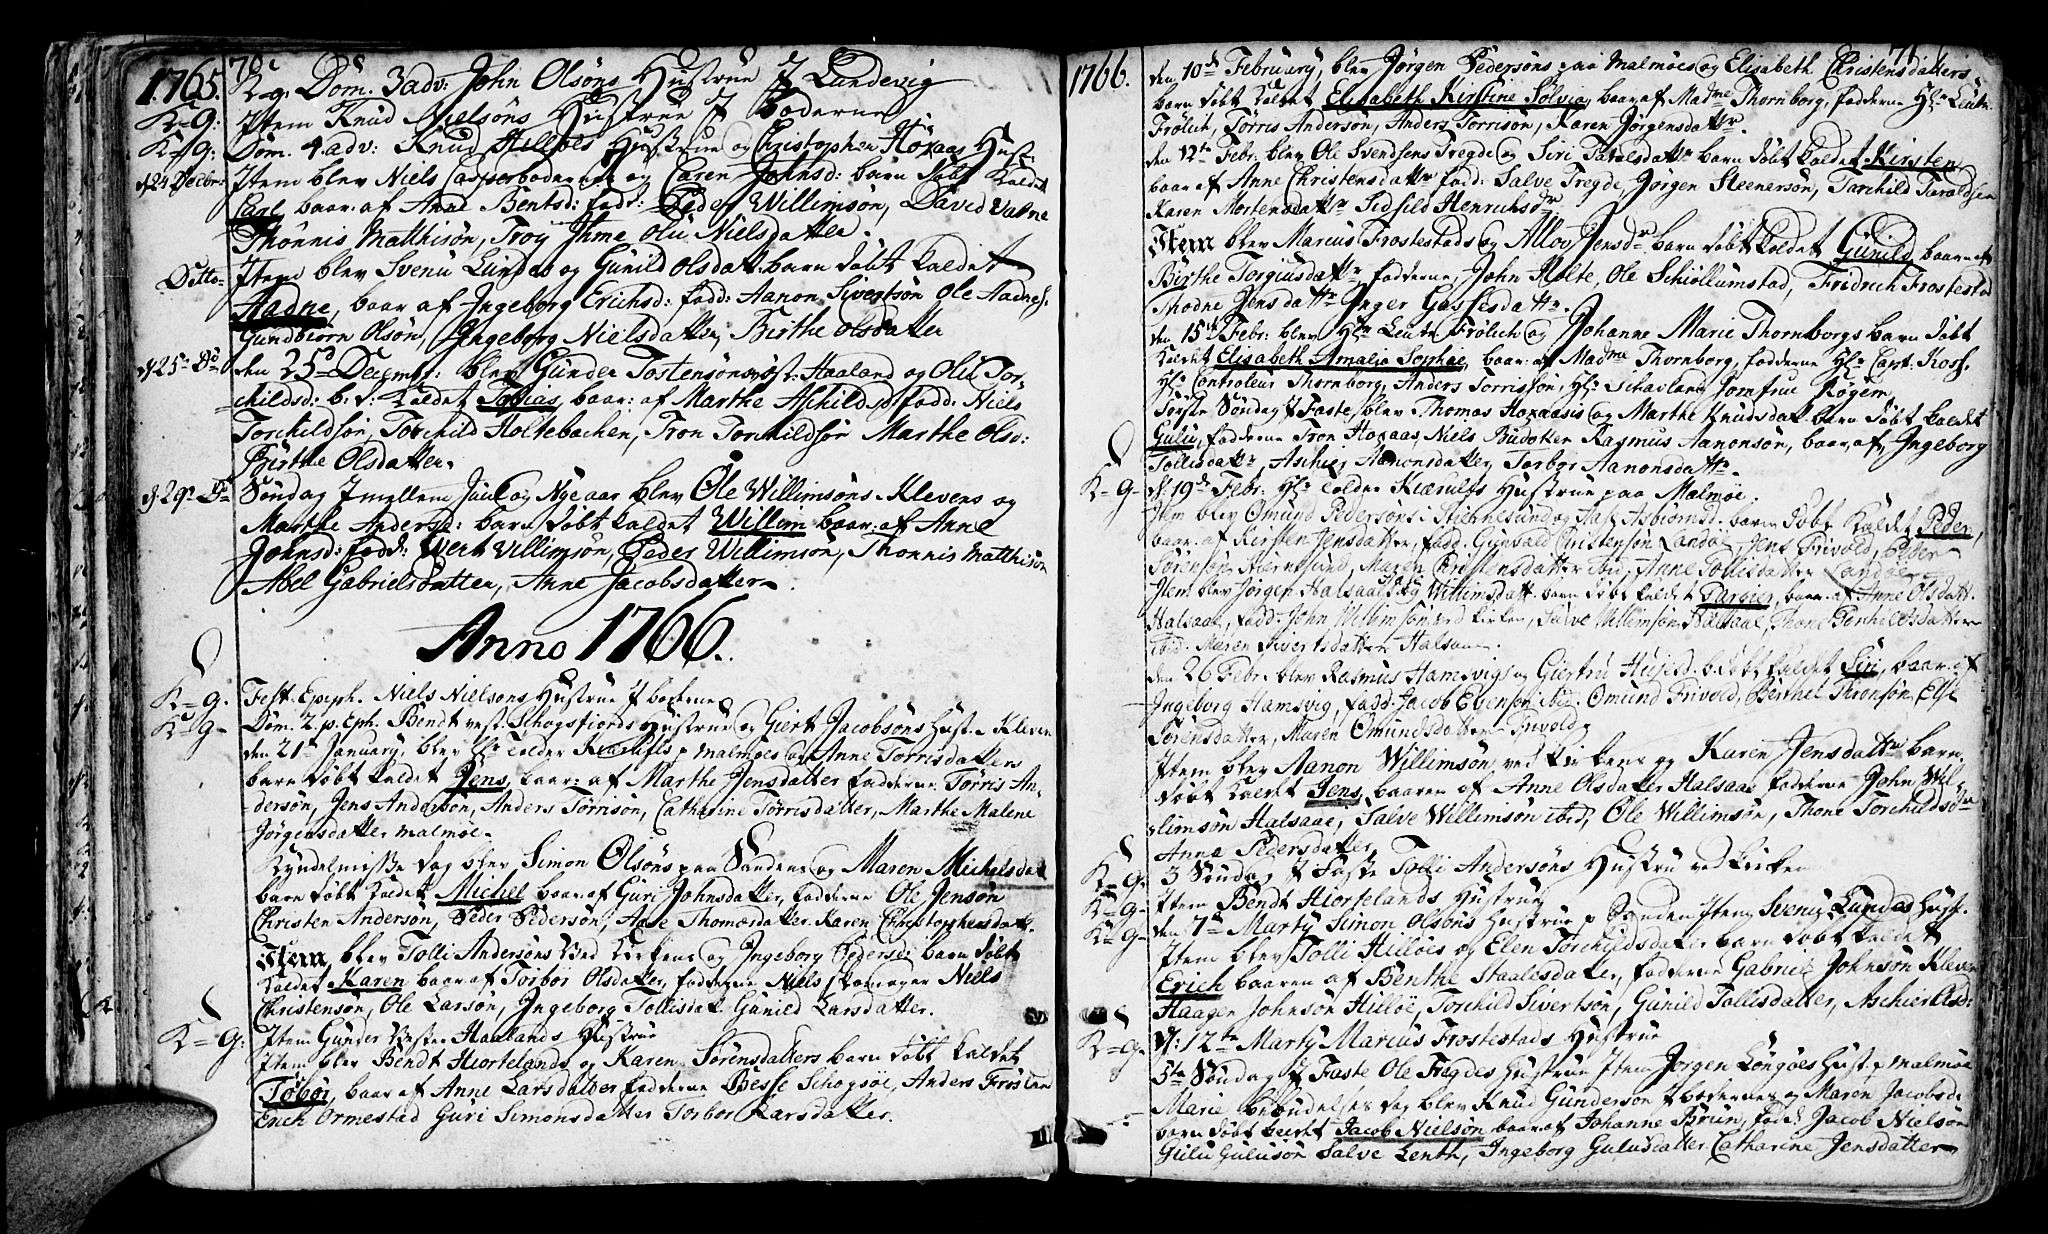 1765. 70.
K=g: Dom. 3 adv: John Olsöns Hustrue i Lundevig
K=g: Item Knud Nielsöns Hustrue i Boderne
K=g: Dom. 4. adv: Knud Hilløes Hustrue og Christopher Höxaas Hust:
d. 24 Decbr: Item blev Niels Casper boderne og Caren Johnsd: barn döbt kaldet
Carl, baar: af Anne Bentsd: fadd: Peder Willimsön, David Valne
Thönnis Matthisön, Troy Ihme Oliv Nielsdatter.
Ditto Item blev Svenu Lundes og Gunild Olsdatt: barn döbt kaldet
Aadne, baar af Ingeborg Erichsd: fadd: Aanon Sivertsön Ole Aadnes:
Gundbiörn Olsön, Ingeborg Nielsdatter, Birthe Olsdatter
d. 25 Do den 25d Decembr: blev Gunder Tostensöns vest: Haaland og Oliv Tor-
childsd: b: d: kaldet Tobias, baar: af Marthe Aschildsd: fadd: Niels
Torchildsön, Torchild Holtebachen, Tron Torchildsön Marthe Olsd:
Birthe Olsdatter.
d. 29 Do Söndag imellem Juul og Nyeaar blev Ole Willimsöns Klevens og
Marthe Andersd: barn döbt kaldet Willim baar: af Anne
Johnsd: fadd: Villimsön, Peder Willimsön, Thönnis Matthisön
Abel Gabrielsdatter, Anne Jacobsdatter.
Anno 1766.
K=g. Fest. Epiph. Niels Nielsons Hustrue i boderne
K=g Dom. 2. p. Eph. Bendt vest. Schogsfiords Hustrue og Giert Jacobsöns Hust. Kleven
den 21de January, blev Hr Tolder Kierulfs p Malmöe og Anne Torrisdatters
barn döbt kaldet Jens, baar: af Marthe Jensdatter faddere Törris An-
dersön, Jens Anderson, Anders Törrisön, Catharine Torrisdatter, Marthe Malene
Jörgensdatter malmöe.
Kyndelmisse dag blev Simon Olsöns paa Sanden og Maren Michelsdat
barn döbt kaldet Michel baar af Guri Johnsdatter, fadderne Ole Jensön
Christen Andersön, Peder Pedersön, Aase Thomædatter Karen Christophersdatt.
Item blev Tolli Andersöns Ved Kirken og Ingeborg Pedersd: barn döbt
kaldet Karen baar af Torbör Olsdatter, fadderne Niels skomager Niels
Christensön, Ole Larsön, Ingeborg Tollisdat. Gunild Larsdatter.
K=g: Item Gunder Vester Haalands Hustrue
Item blev Bendt Hiortelands og Karen Sörensdatters barn döbt kaldet
Töbör, baar af Anne Larsdatter fadderne Besse Schogsöe, Anders
Erich Ormestad Guri Simonsdatter Torbor Larsdatter.
1766. 71
den 10de February, blev Jörgen Pedersöns paa Malmöe og Elisabeth Christensdatters
barn döbt kaldet Elisabeth Kirstine Sölvia, baar af Madme Thornborg, fadderne Hr Leut.
Frölich, Törris Andersön, Anders Torrisön, Karen Jörgensdattr.
den 12te Febr: blev Ole Svendsens Tregde og Siri Taralsdattr barn döbt kaldet Kirsten
baar af Anne Christensdattr fadd: Salve Tregde, Jörgen Steenersön, Torchild Taraldsen
Karen Mortensdattr Sidsild Henrichsdr
Item blev Marcus Frostestads og Allov Jensdr barn döbt kaldet Gunild, baaren af
Birthe Torgiusdattr, fadderne, John Holte, Ole Schiöllumstad, Fridrich Frostestad
Thodne Jensdattr Inger Gassesdattr.
den 15de Febr: blev Hr Leutn Frölich og Johanne Marie Thornborgs barn döbt
kaldet Elisabeth Amalia Sophae, baar: af Madme Thornborg, fadderne Hr Capt: Kross.
Hr Controleur Thornborg, Anders Torrisson, Hr Schavland Jomfrue Rögem
Förste Söndag i Faste, blev Thomas Höxaasis og Marthe Knudsdat: barn döbt kaldet
Gulu, fadderne Tron Hoxaas, Niels Rasmus Aanonsön, baar, af, Ingeborg
Tollisdattr, Aschier Aanonsdatter, Torbor Aanonsdattr.
K=g- d. 19de Febr: Hr Tolder Kiærulfs Hustrue paa Malmöe.
Item blev Omund Pedersöns i Stiernesund og Aase Asbiörnsd. barn döbt kaldet Peder,
baar. af Kirsten Jensdatter, fadd. Gunbald Christensön Landöe, Jens Trivold, Peder
Sörensön Stiernesund, Maren Christensdatter ibid. Anne Tollisdatter Landöe
Item blev Jörgen Halsaas og Willimsdatt. barn döbt kaldet Targier, baar. af Anne Olsdatt.
Halsaae, fadd. John Willimsön ved kirken, Salve Willimsön Halsaae, Thone Torchelsdatter
ibid. Maren Sivertsdatter Halsaae.
den 26 Febr. blev Rasmus Hamsvigs og Giertru b: döbt kaldet Siri, baar. af
Ingeborg Hamsvig, fadd. Jacob Evensön ibid. Omund Trivold, Berthel Thronsön, Else
Sörensdatter, Maren Omundsdatter Trivold
Item blev Aanon Willimsön ved kirkens og Karen Jensdattrs barn
döbt kaldet Jens, baaren af Anne Olsdatter Halsaae fadderne John Wil-
limsön Halsaae, Salve Willimsön ibid, Ole Willimsön, Thone Torchildsdr
Anne Pedersdatter
K=g. 3 Söndag i Faste Tolli Andersöns Hustru ved kirken
K=g- Item Bendt Hiortelands Hustrue
K=g- den 7de Marty Simon Olsöns Hustrue p Sanden Item Svenu Lundes Hust.
Item blev Tolli Hilløis og Elen Torchildsdatter barn döbt kaldet
Erich baaren af Benthe Staalesdatter, fadderne Gabriel Johnsön Kleven
Haagen Johnson Hilløe, Torchild Sivertsön, Gunild Tollisdatter, Aschier
K=g. d: 12te Marty Marcus Frostestads Hustrue
5te Söndag i Faste Ole Tregdes Hustrue Item Jörgen Longöes Hust. p malmöe
Marie bebudelses dag blev Knud Gunderson i bodernes og Maren Jacobsd:
barn döbt kaldet Jacob Nielson baar af Johanne Brun, fadd: Jacob Nielsön
Gulu Gulusön Salve Lenth, Ingeborg Gulusdatter Catharine Jensdatter